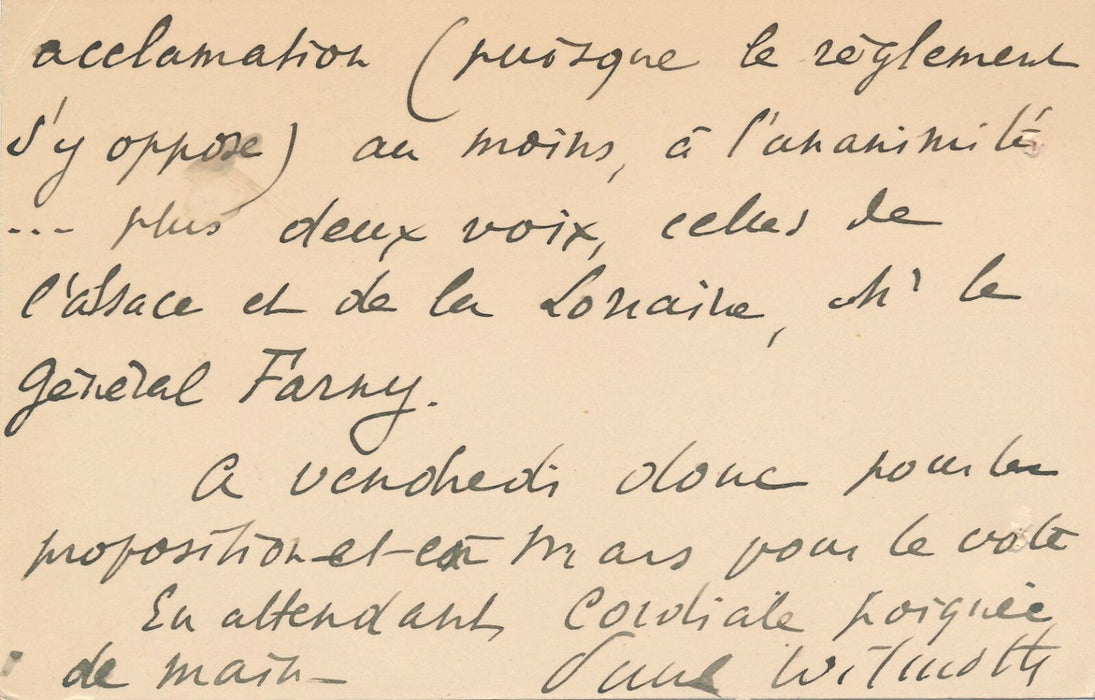 acclamation (puisque le règlement
s'y oppose) au moins, à l'unanimité
... plus deux voix, celles de
l'Alsace et de la Lorraine, Mr le
Général Farny.
A vendredi donc pour la
proposition et en Mars pour le vote
En attendant, Cordiale poignée
de main_
Wilmoth